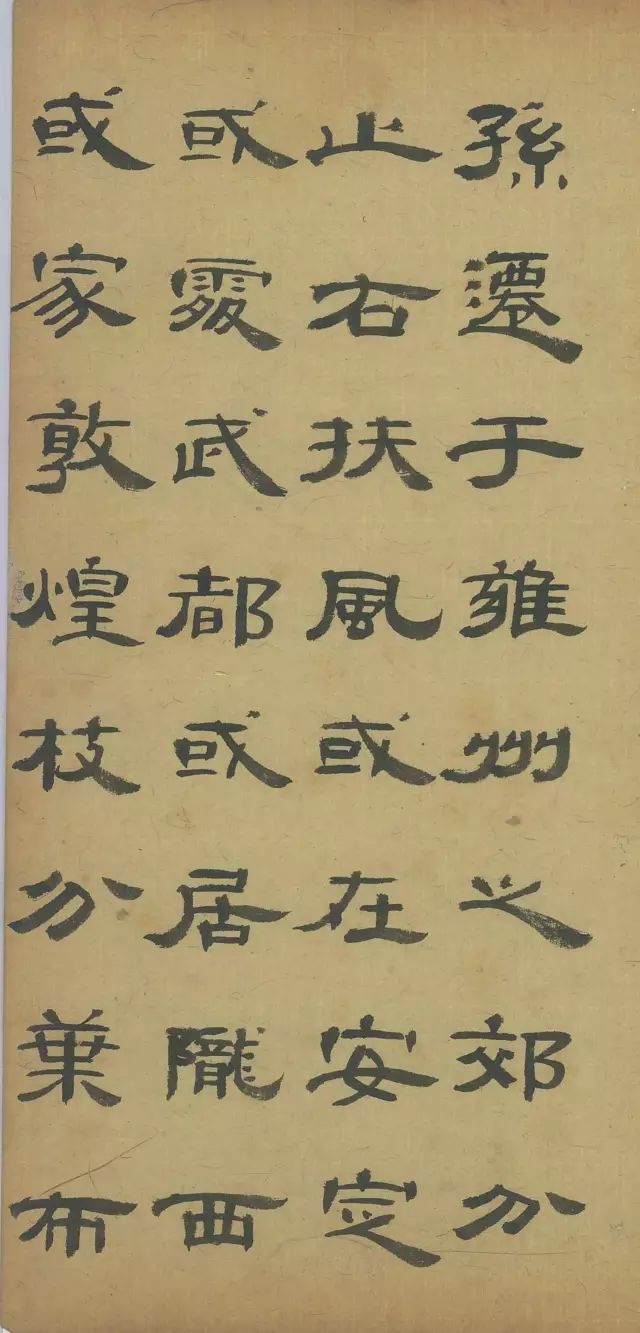 孫遷于雍州之郊分
止右扶風或在安定
或處武都或居隴西
或家敦煌枝分葉布